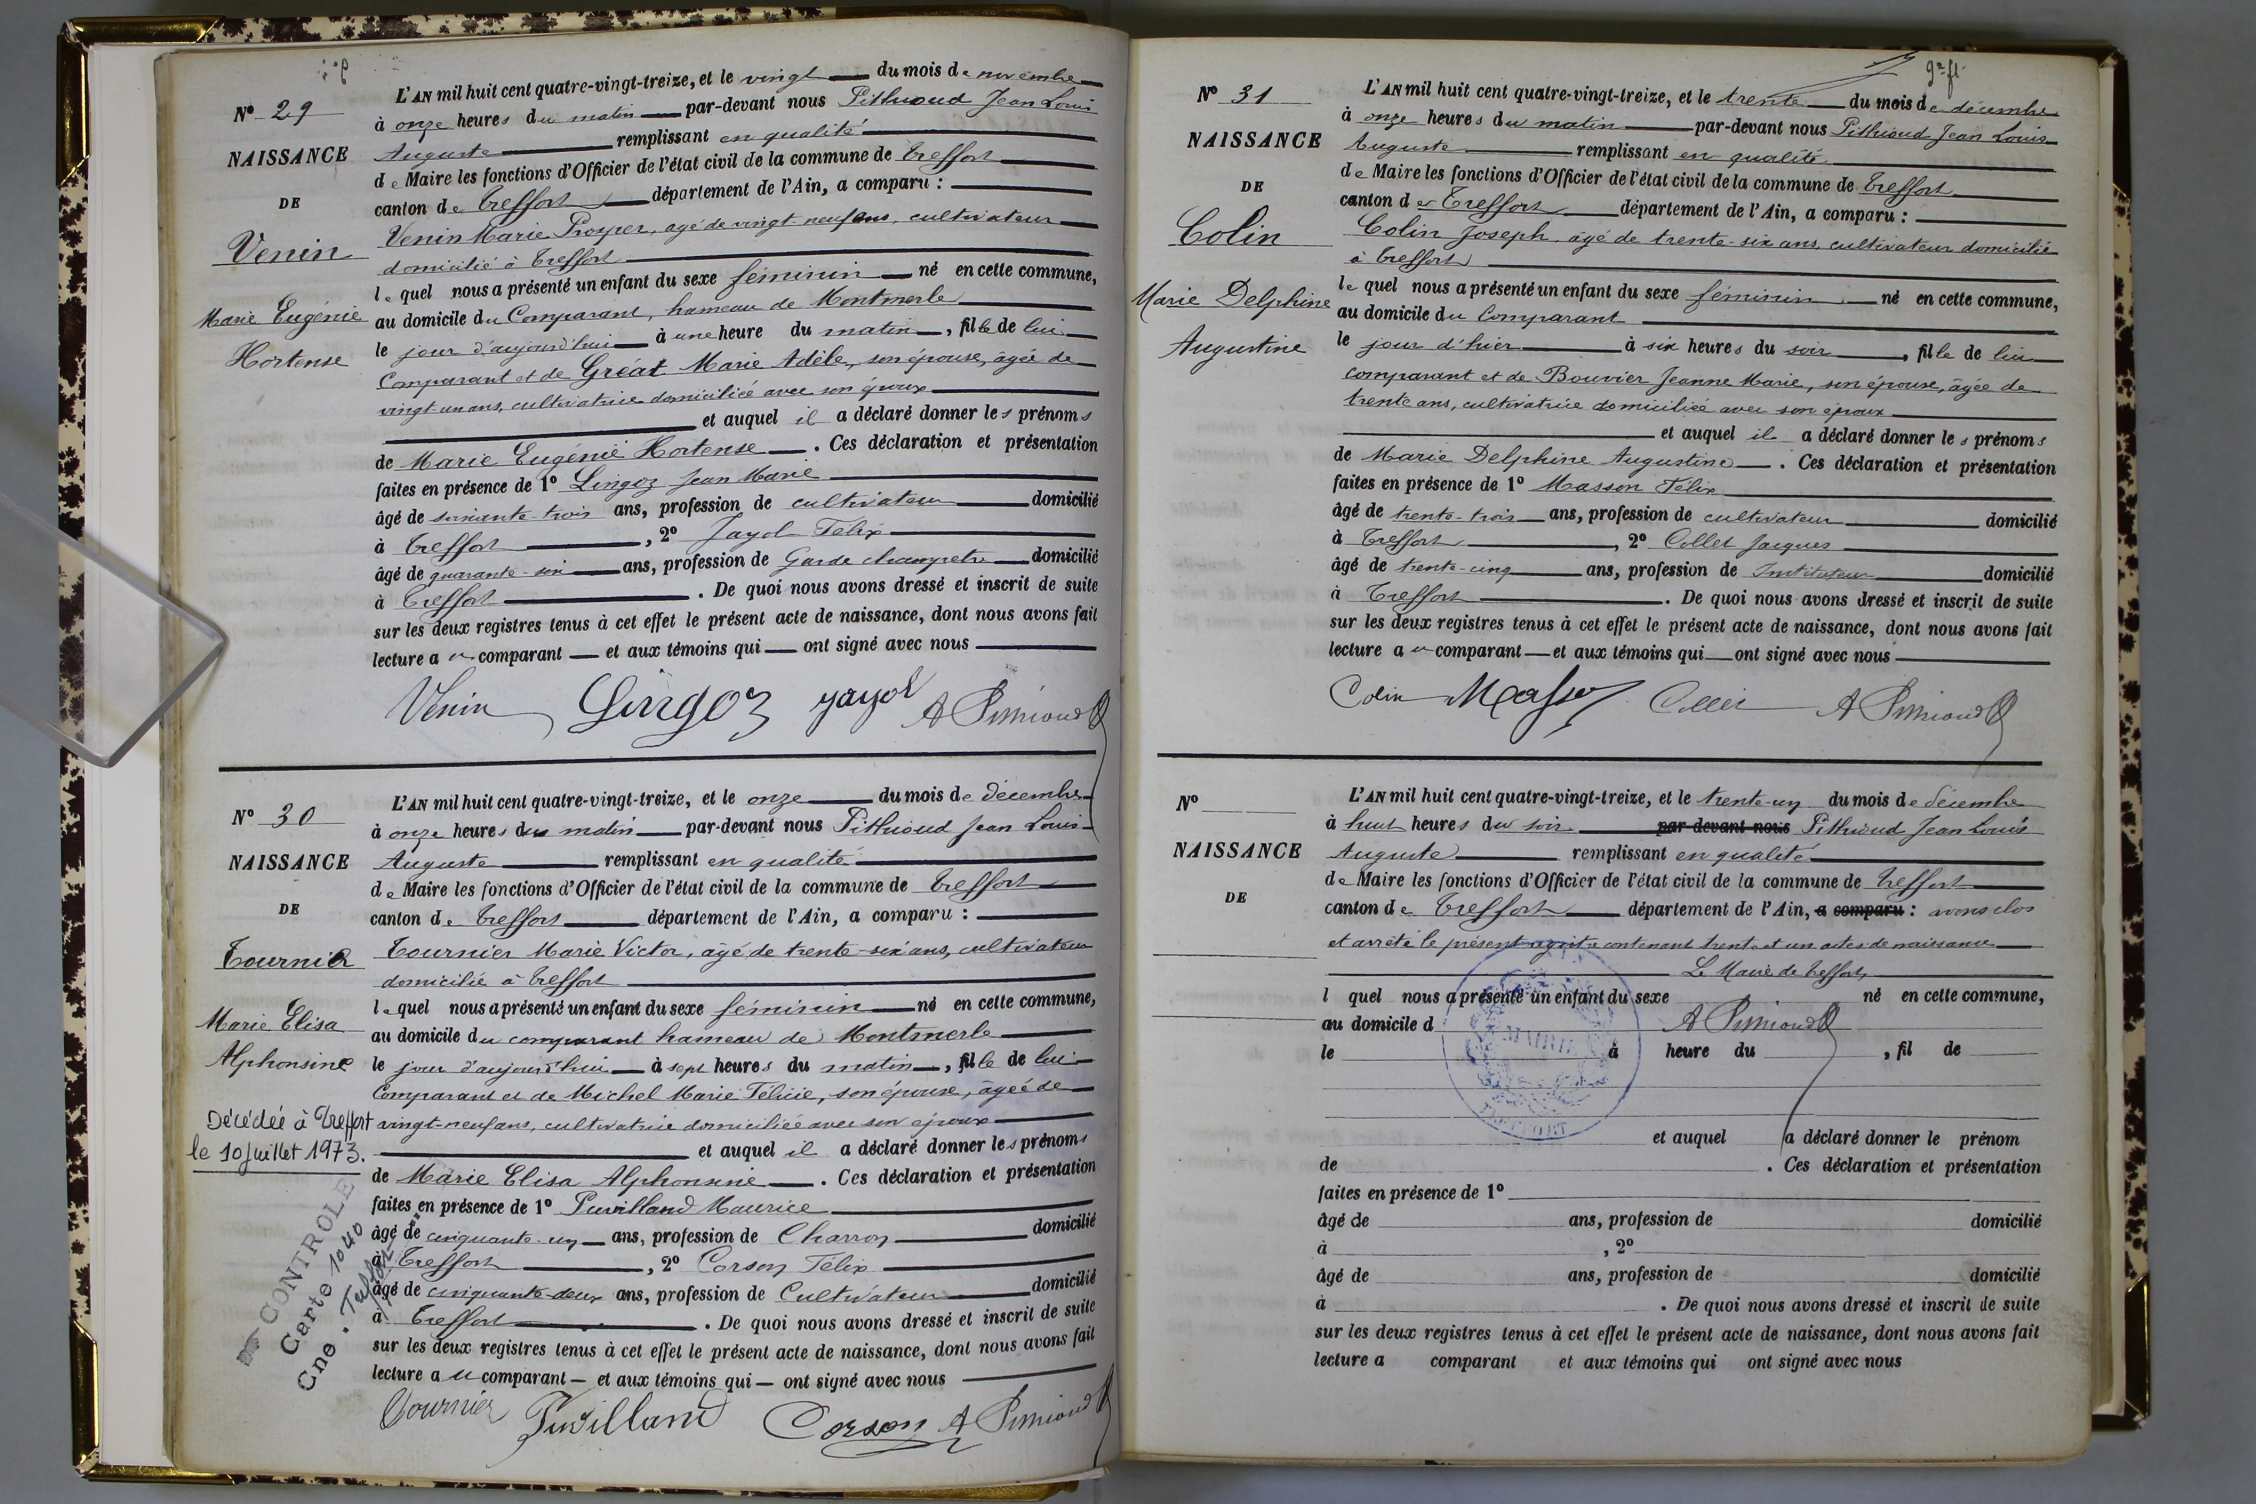 L'AN mil huit cent quatre-vingt-treize, et le vingt du mois de novembre
N° 29
à onze heures du matin par-devant nous Pithioud Jean Louis
NAISSANCE
Auguste remplissant en qualité
de Maire les fonctions d'Officier de l'état civil de la commune de Treffort
DE
canton de Treffort département de l'Ain, a comparu :
Venin
Venin Marie Prosper, agé de vingt neuf ans, cultivateur
domicilié à Treffort
le quel nous a présenté un enfant du sexe féminin né en cette commune,
Marie Eugénie
au domicile du Comparant, hameau de Montmerle
Hortense
le jour d'aujourd'hui à une heure du matin, fille de lui
Comparant et de Gréat Marie Adèle, son épouse, agée de
vingt un ans, cultivatrice domiciliée avec son époux
et auquel il a déclaré donner les prénoms
de Marie Eugénie Hortense. Ces déclaration et présentation
faites en présence de 1° Lingoz Jean Marie
âgé de soixante-trois ans, profession de cultivateur domicilié
à Treffort, 2° Jayol Félix
âgé de quarante-six ans, profession de Garde champetre domicilié
à Treffort. De quoi nous avons dressé et inscrit de suite
sur les deux registres tenus à cet effet le présent acte de naissance, dont nous avons fait
lecture au comparant et aux témoins qui ont signé avec nous
Venin Lingoz Jayol A Pithioud
L'AN mil huit cent quatre-vingt-treize, et le onze du mois de décembre
N° 30
à onze heures du matin par-devant nous Pithioud Jean Louis
NAISSANCE
Auguste remplissant en qualité
de Maire les fonctions d'Officier de l'état civil de la commune de Treffort
DE
canton de Treffort département de l'Ain, a comparu :
Tournier
Tournier Marie Victor, âgé de trente-six ans, cultivateur
domicilié à Treffort
le quel nous a présenté un enfant du sexe féminin né en cette commune,
Marie Elisa
au domicile du comparant hameau de Montmerle
Alphonsine
le jour d'aujourd'hui à sept heures du matin, fille de lui
Comparant et de Michel Marie Félicie, son épouse, âgée de
Décédée à Treffort
vingt-neuf ans, cultivatrice domiciliée avec son époux
le 10 juillet 1973.
et auquel il a déclaré donner les prénoms
de Marie Elisa Alphonsine. Ces déclaration et présentation
faites en présence de 1° Puvilland Maurice
âgé de cinquante-un ans, profession de Charron domicilié
à Treffort, 2° Corson Félix
âgé de cinquante-deux ans, profession de Cultivateur domicilié
à Treffort. De quoi nous avons dressé et inscrit de suite
sur les deux registres tenus à cet effet le présent acte de naissance, dont nous avons fait
lecture au comparant et aux témoins qui ont signé avec nous
CONTROLE
Carte 1040
Cne. Treffort
Tournier Puvilland Corson A Pithioud
L'AN mil huit cent quatre-vingt-treize, et le trente du mois de décembre
N° 31
à onze heures du matin par-devant nous Pithioud Jean Louis
NAISSANCE
Auguste remplissant en qualité
de Maire les fonctions d'Officier de l'état civil de la commune de Treffort
DE
canton de Treffort département de l'Ain, a comparu :
Colin
Colin Joseph, âgé de trente-six ans, cultivateur domicilié
à Treffort
le quel nous a présenté un enfant du sexe féminin né en cette commune,
Marie Delphine
au domicile du Comparant
Augustine
le jour d'hier à six heures du soir, fille de lui
comparant et de Bouvier Jeanne Marie, son épouse, âgée de
trente ans, cultivatrice domiciliée avec son époux
et auquel il a déclaré donner les prénoms
de Marie Delphine Augustine. Ces déclaration et présentation
faites en présence de 1° Masson Félix
âgé de trente-trois ans, profession de cultivateur domicilié
à Treffort, 2° Collet Jacques
âgé de trente-cinq ans, profession de Instituteur domicilié
à Treffort. De quoi nous avons dressé et inscrit de suite
sur les deux registres tenus à cet effet le présent acte de naissance, dont nous avons fait
lecture au comparant et aux témoins qui ont signé avec nous
Colin Masson Collet A Pithioud
L'AN mil huit cent quatre-vingt-treize, et le trente-un du mois de décembre
N°
à huit heures du soir par-devant nous Pithioud Jean Louis
NAISSANCE
Auguste remplissant en qualité
de Maire les fonctions d'Officier de l'état civil de la commune de Treffort
DE
canton de Treffort département de l'Ain, a comparu : avons clos
et arrêté le présent registre contenant trente et un actes de naissance
Le Maire de Treffort,
l quel nous a présenté un enfant du sexe né en cette commune,
au domicile d A Pithioud
MAIRIE
TREFFORT
le à heure du , fil de
et auquel a déclaré donner le prénom
de . Ces déclaration et présentation
faites en présence de 1°
âgé de ans, profession de domicilié
à , 2°
âgé de ans, profession de domicilié
à . De quoi nous avons dressé et inscrit de suite
sur les deux registres tenus à cet effet le présent acte de naissance, dont nous avons fait
lecture a comparant et aux témoins qui ont signé avec nous